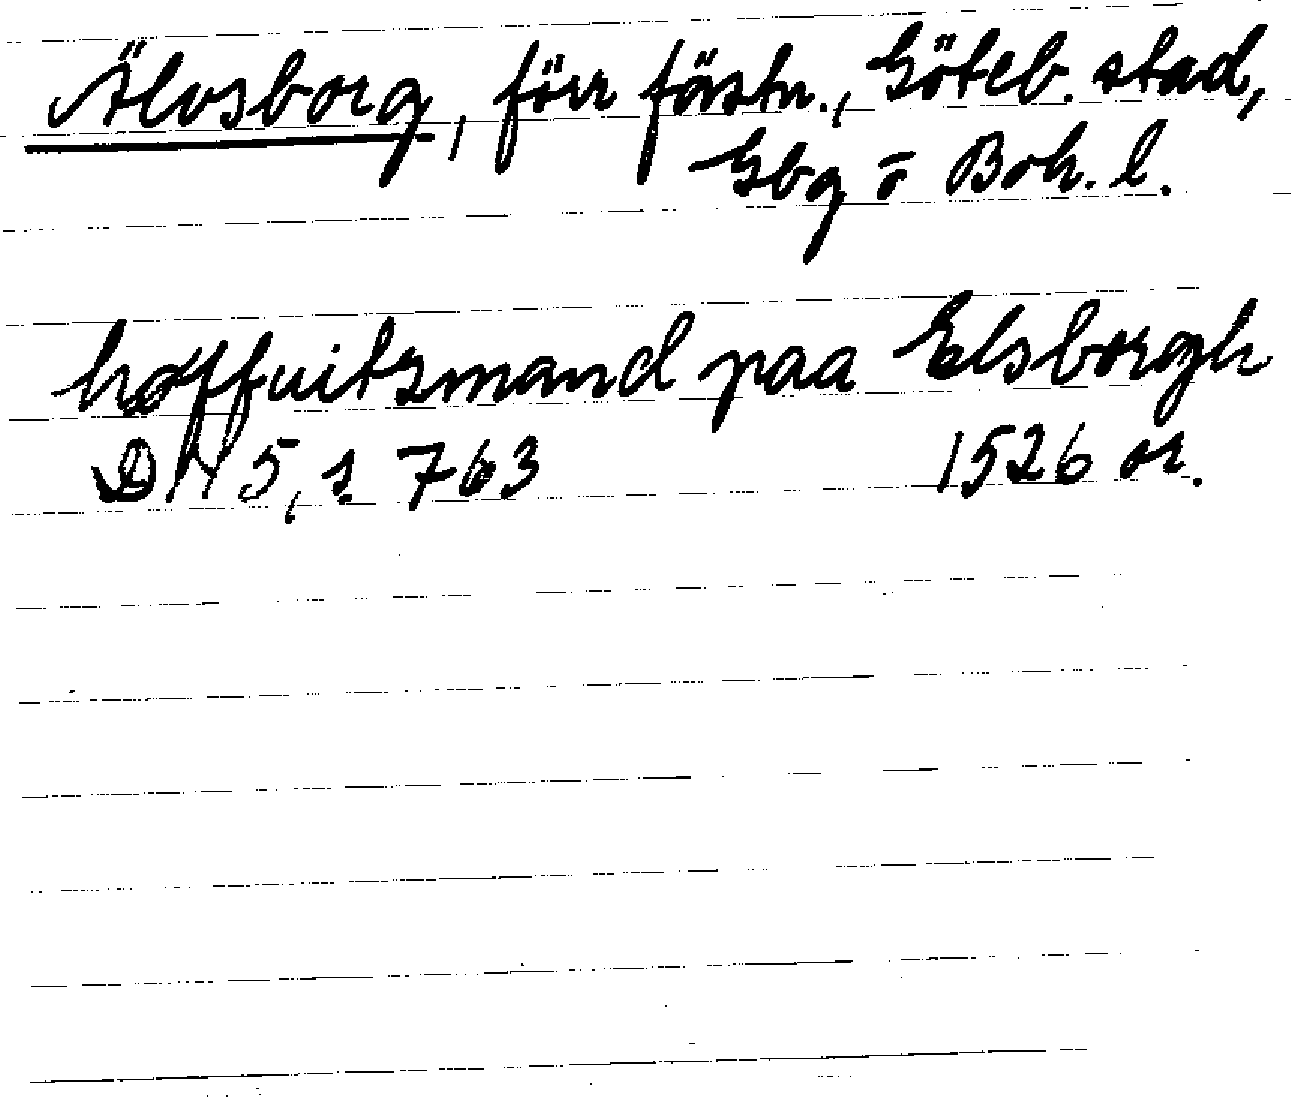 Älvsborg, förr fästn., Göteb. stad,
Gbg o Boh. l.
høffuitzmand paa Elsborgh
DN 5, s. 763 1526 or.